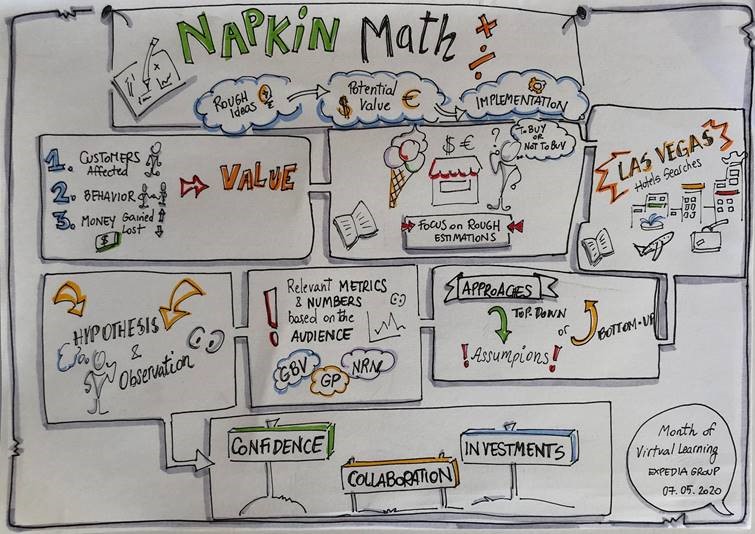 NAPKIN Math
ROUGH
IDEAS
Potential
Value
$ €
IMPLEMENTATION
1. CUSTOMERS
Affected
2. BEHAVIOR
3. MONEY Gained
Lost
$
VALUE
$ €
?
To BUY
OR
NOT To BUY
FOCUS on ROUGH
ESTIMATIONS
LAS VEGAS
Hotels Searches
HYPOTHESIS
&
Observation
! Relevant METRICS
& NUMBERS
based on the
AUDIENCE
GBV
GP
NRN
APPROACHES
TOP-DOWN
or
BOTTOM-UP
! Assumptions !
CONFIDENCE
COLLABORATION
INVESTMENTS
Month of
Virtual Learning
EXPEDIA GROUP
07.05.2020